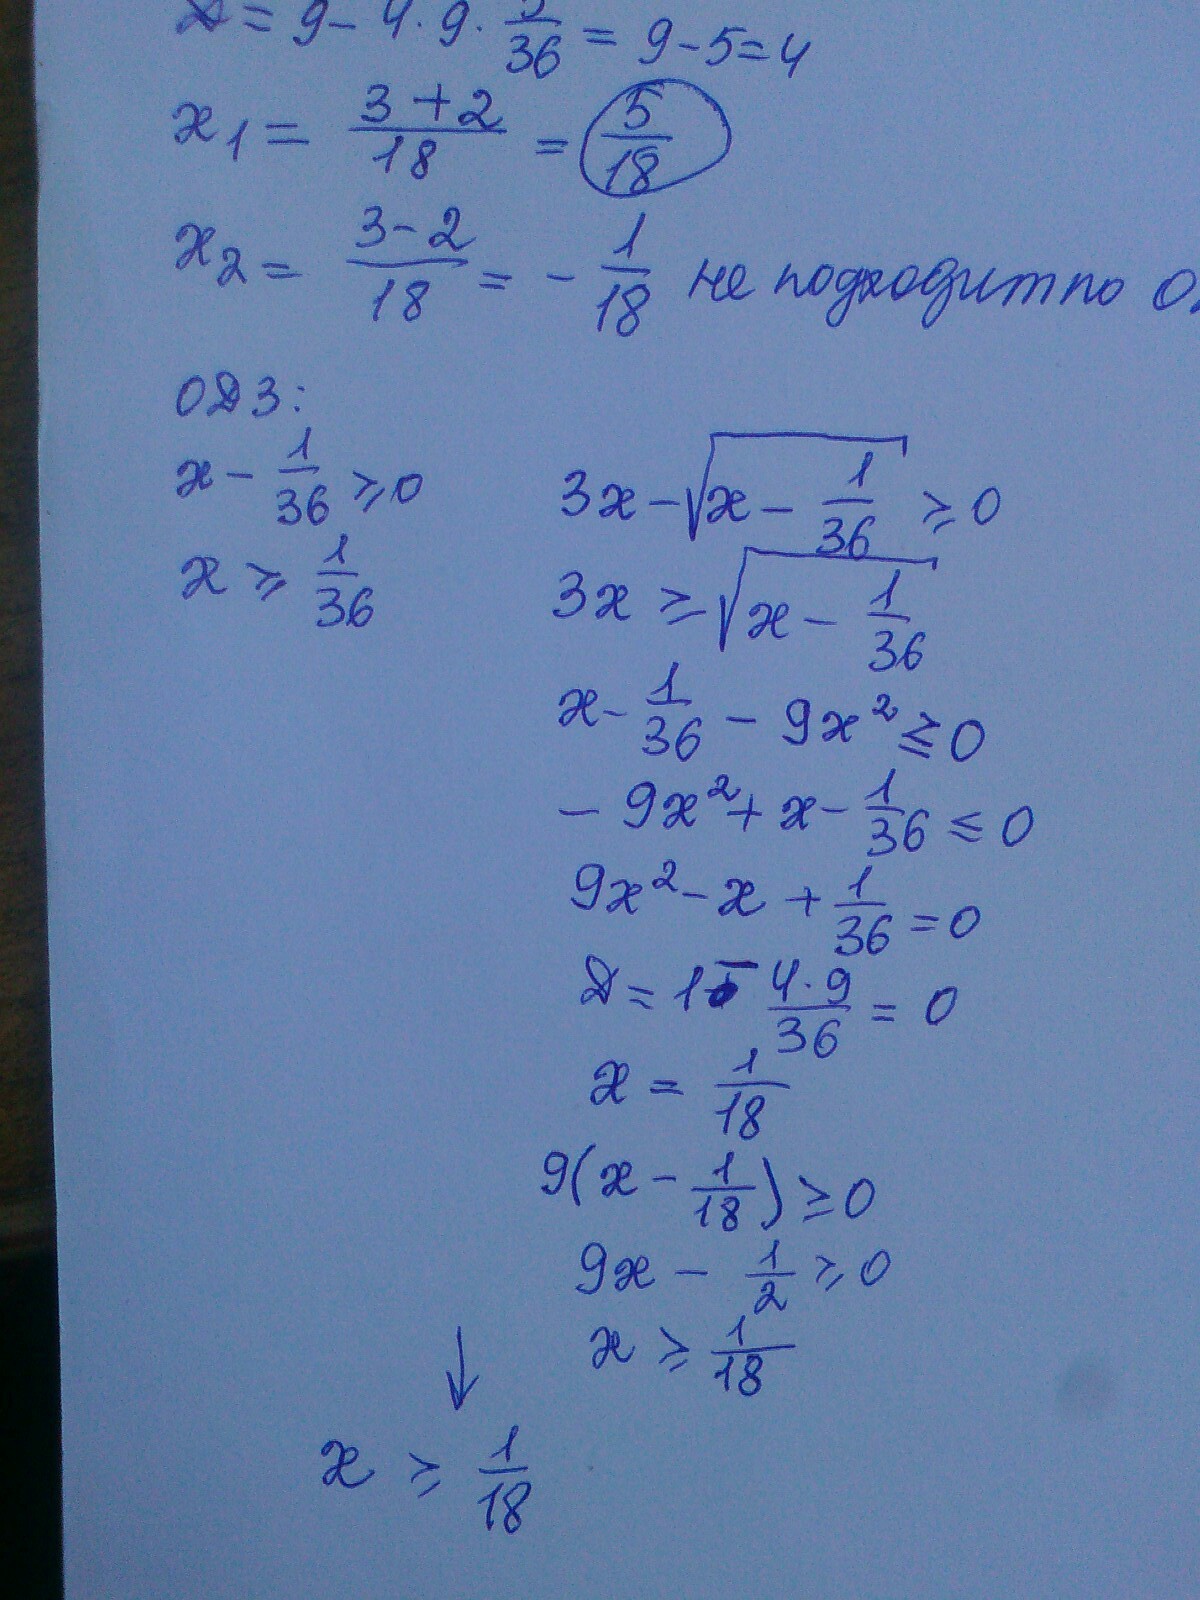 D = 9 - 4 · 9 · 5/36 = 9 - 5 = 4
x₁ = (3 + 2)/18 = 5/18
x₂ = (3 - 2)/18 = - 1/18 не подходит по О
ОДЗ:
x - 1/36 ≥ 0
x ≥ 1/36
3x - √(x - 1/36) ≥ 0
3x ≥ √(x - 1/36)
x - 1/36 - 9x² ≤ 0
- 9x² + x - 1/36 ≤ 0
9x² - x + 1/36 = 0
D = 1 - (4 · 9)/36 = 0
x = 1/18
9(x - 1/18) ≥ 0
9x - 1/2 ≥ 0
x ≥ 1/18
↓
x ≥ 1/18